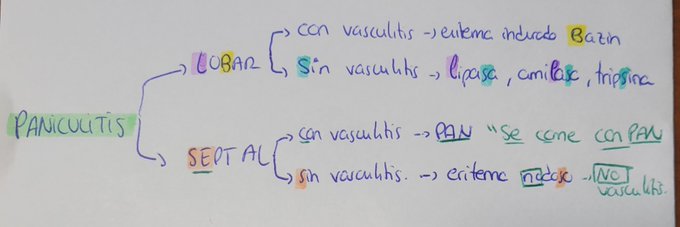 con vasculitis → eritema indurado Bazin
LOBAR
Sin vasculitis → lipasa, amilasa, tripsina
PANICULITIS
con vasculitis → PAN "Se come con PAN
SEPTAL
sin vasculitis. → eritema nodoso → NO
vasculitis.